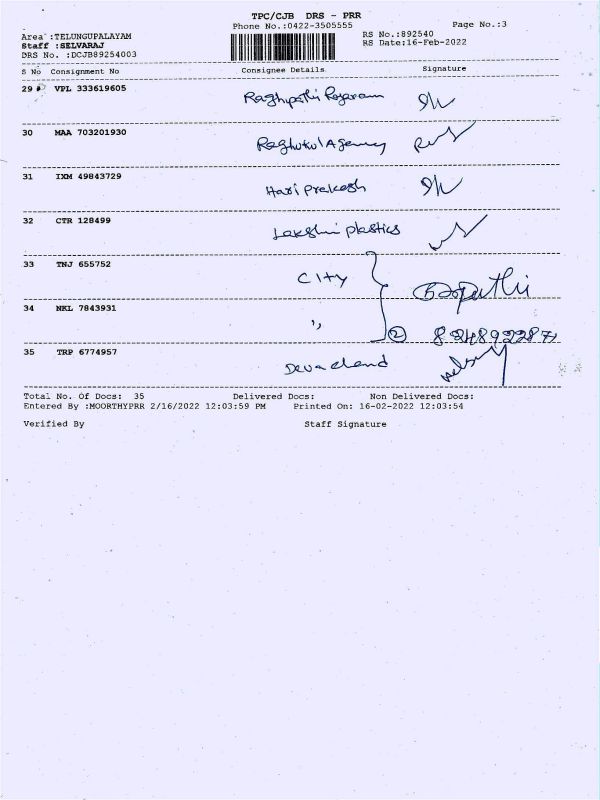 TPC/CJB DRS - PRR
Phone No.:0422-3505555 Page No.:3
Area :TELUNGUPALAYAM RS No.:892540
Staff :SELVARAJ RS Date:16-Feb-2022
DRS No. :DCJB89254003
S No Consignment No Consignee Details Signature
29 VPL 333619605
30 MAA 703201930 Raghukul Agency
31 IXM 49843729 Hari prakash
32 CTR 128499 Lakshmi plastics
33 TNJ 655752 City
34 NKL 7843931 " 2
35 TRP 6774957 Devachand
Total No. Of Docs: 35 Delivered Docs: Non Delivered Docs:
Entered By :MOORTHYPRR 2/16/2022 12:03:59 PM Printed On: 16-02-2022 12:03:54
Verified By Staff Signature